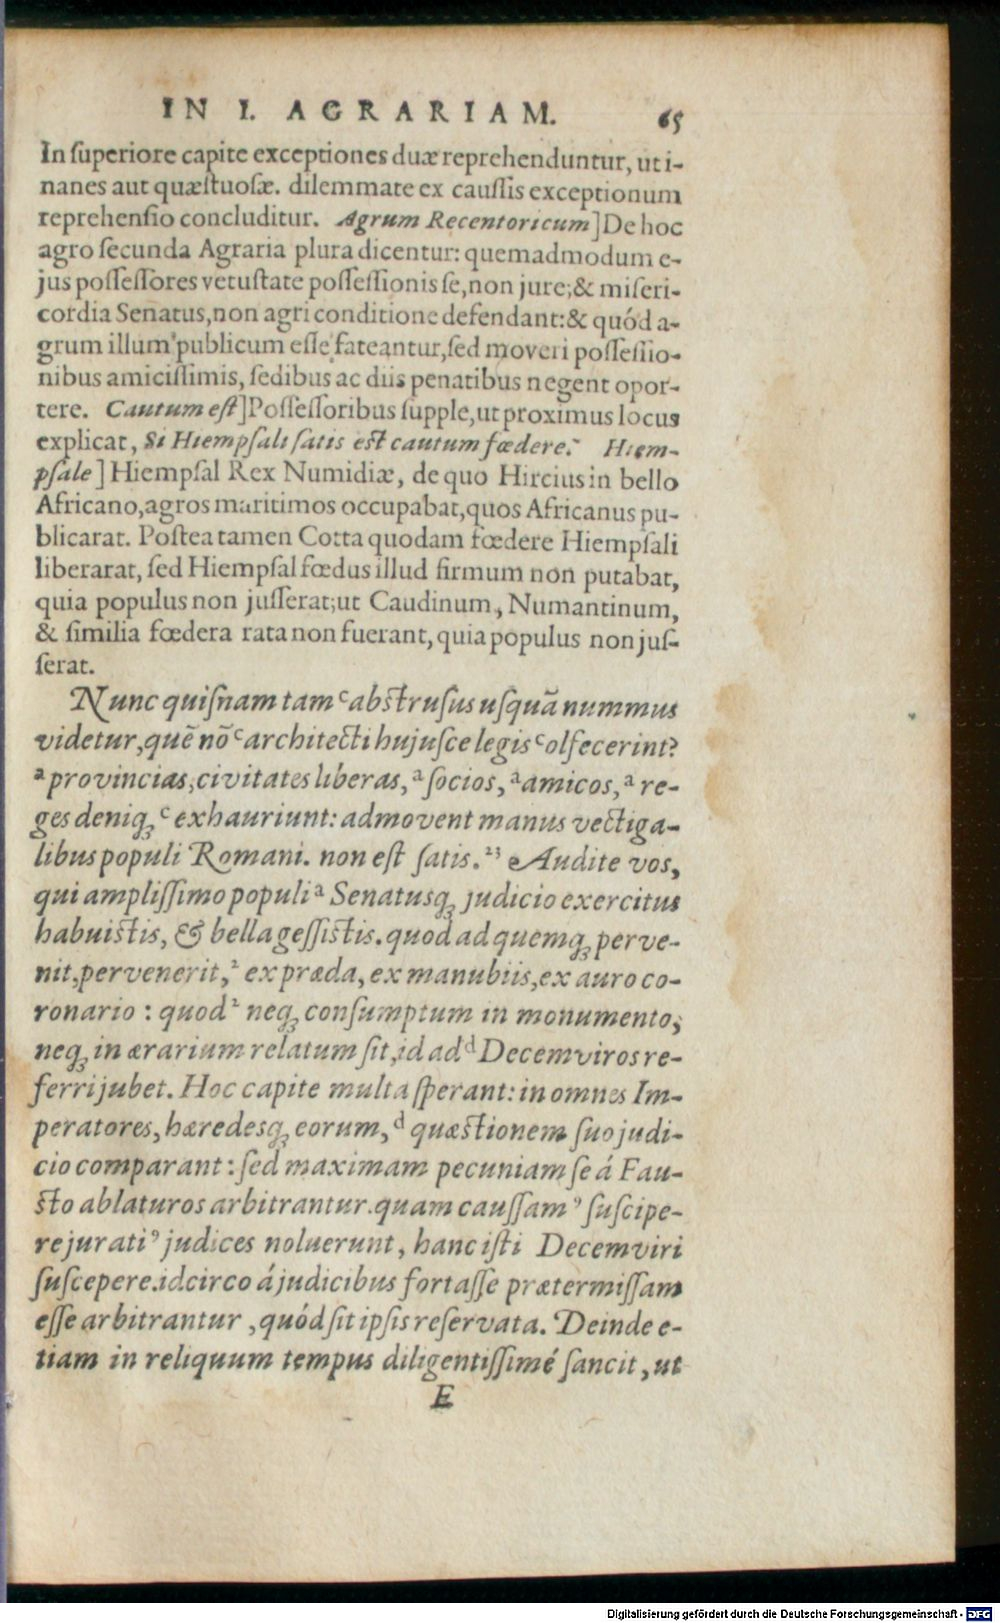 IN I. AGRARIAM. 65
In superiore capite exceptiones duæ reprehenduntur, ut i-
nanes aut quæstuosæ. dilemmate ex caussis exceptionum
reprehensio concluditur. Agrum Recentoricum] De hoc
agro secunda Agraria plura dicentur: quemadmodum e-
jus possessores vetustate possessionis se, non jure; & miseri-
cordia Senatus, non agri conditione defendant: & quód a-
grum illum publicum esse fateantur, sed moveri possessio-
nibus amicissimis, sedibus ac diis penatibus negent opor-
tere. Cautum est] Possessoribus supple, ut proximus locus
explicat, Si Hiempsali satis est cautum fœdere. Hiem-
psale] Hiempsal Rex Numidiæ, de quo Hircius in bello
Africano, agros maritimos occupabat, quos Africanus pu-
blicarat. Postea tamen Cotta quodam fœdere Hiempsali
liberarat, sed Hiempsal fœdus illud firmum non putabat,
quia populus non jusserat; ut Caudinum, Numantinum,
& similia fœdera rata non fuerant, quia populus non jus-
serat.
Nunc quisnam tam ᶜabstrusus usquã nummus
videtur, quẽ nõ ᶜarchitecti hujusce legis ᶜolfecerint?
ᵃprovincias, civitates liberas, ᵃsocios, ᵃamicos, ᵃre-
ges deniq; ᶜexhauriunt: admovent manus vectiga-
libus populi Romani. non est satis. ²³ Audite vos,
qui amplissimo populi ᵃSenatusq; judicio exercitus
habuistis, & bella gessistis. quod ad quemq; perve-
nit, pervenerit, ² ex præda, ex manubiis, ex auro co-
ronario: quod ² neq; consumptum in monumento,
neq; in ærarium relatum sit, id ad ᵈDecemviros re-
ferri jubet. Hoc capite multa sperant: in omnes Im-
peratores, hæredesq; eorum, ᵈquæstionem suo judi-
cio comparant: sed maximam pecuniam se á Fau-
sto ablaturos arbitrantur. quam caussam ⁹ suscipe-
re jurati ⁹ judices noluerunt, hanc isti Decemviri
suscepere. idcirco á judicibus fortasse prætermissam
esse arbitrantur, quód sit ipsis reservata. Deinde e-
tiam in reliquum tempus diligentissimé sancit, ut
E
Digitalisierung gefördert durch die Deutsche Forschungsgemeinschaft - DFG